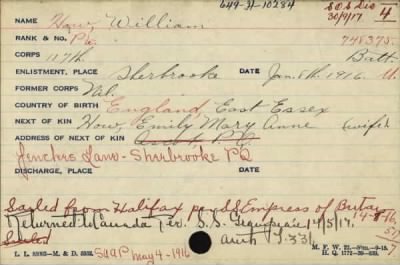 649-H-10284
S.O.S. Dis 30/9/17
4
NAME How, William
RANK & No. Pte. 748375.
CORPS 117th Batt.
ENLISTMENT, PLACE Sherbrooke DATE Jan. 8th. 1916.
FORMER CORPS Nil.
COUNTRY OF BIRTH England East Essex
NEXT OF KIN How, Emily Mary Anne (wife)
ADDRESS OF NEXT OF KIN P.Q.
Jenckes Lane - Sherbrooke P.Q.
DISCHARGE, PLACE DATE
Sailed from Halifax per S.S. Empress of Britain 14-8-16
Returned to Canada per. S.S. 14/5/17.
Sailed auth
L. L. M. & D. SQ9P May 4-1916 M. F. W. 22.
H. Q. 1772-39-